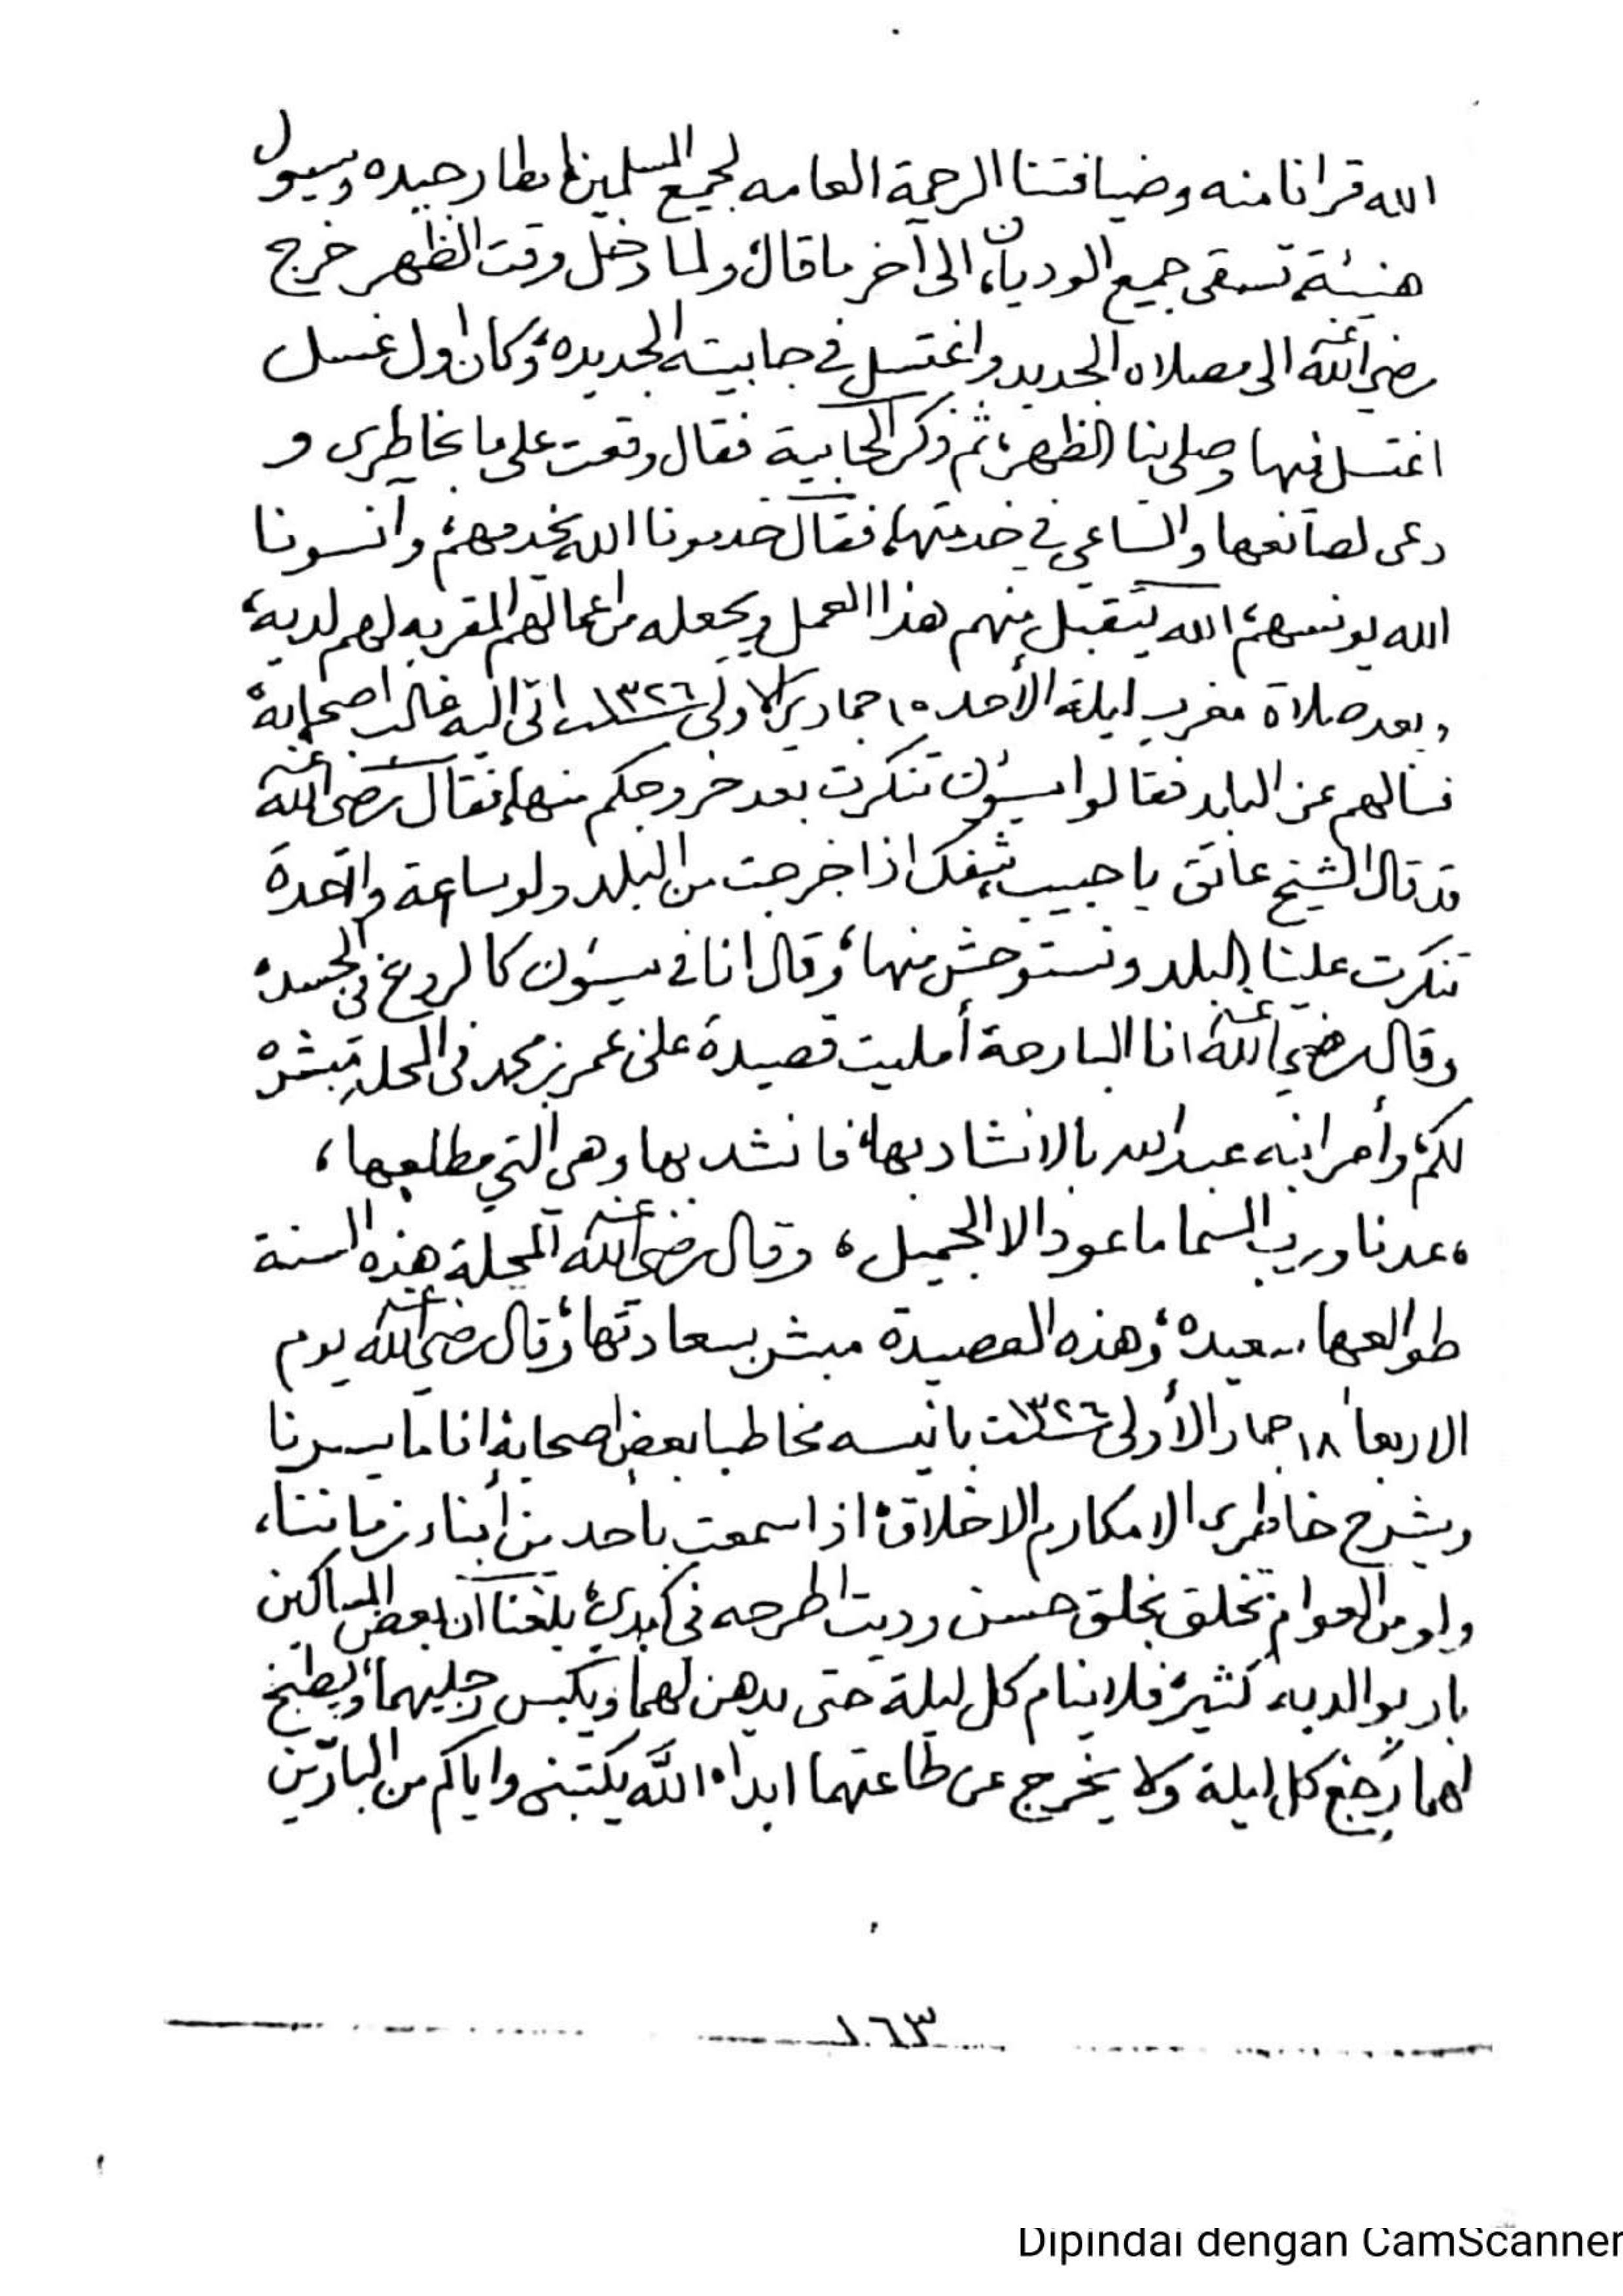 الله قرانا منه وضيافتنا الرحمة العامه لجميع المسلمين امطار جيده وسيول
هنيئة تسقى جميع الوديان، الى آخر ما قال، ولما دخل وقت الظهر خرج
رضي الله عنه الى مصلاه الجديد واغتسل في جابيته الجديده، وكان اول غسل
اغتسل فيها وصلى بنا الظهر، ثم ذكر الجابية فقال وقعت على ما بخاطرى و
دعى لصانعها والساعي في خدمتها، فقال خدمونا الله يخدمهم، وآنسونا
الله يونسهم، الله يتقبل منهم هذا العمل ويجعله من اعمالهم المقربه لهم لديه،
وبعد صلاة مغرب ليلة الأحد ١٥ جمادى الاولى سنة ١٣٢٦ اتى اليه غالب اصحابه،
فسالهم عن البلد فقالوا سيؤن تنكرت بعد خروجكم منها، فقال رضي الله عنه
قد قال الشيخ عاتق يا حبيب اذا خرجت من البلد ولو ساعة واحدة
تنكرت علينا البلد ونستوحش منها، وقال انا في سيؤن كالروح في الجسد،
وقال رضي الله عنه انا البارحة أمليت قصيدة على عمر بن محمد في المحله مبشره
لكم، وأمر ابنه عبدالله بالانشاد بها، فانشد بها وهى التي مطلعها،
، عدنا ورب السما ما عود الا الجميل، وقال رضي الله عنه المحلة هذه السنة
طوالعها سعيده، وهذه القصيدة مبشر بسعادتها، وقال رضي الله عنه يوم
الاربعا ١٨ جماد الأولى سنة ١٣٢٦ بانيسه مخاطبا بعض اصحابه، انا ما يسرنا
ويشرح خاطرى الا مكارم الاخلاق، اذا سمعت باحد من أبناء زماننا،
ولو من العوام تخلق بخلق حسن وديت اطرحه في كبدي، بلغنا ان بعض المساكين
بار بوالديه كثير، فلا ينام كل ليلة حتى يدهن لهما، ويكبس رجليهما، ويطبخ
لهما كل ليلة ولا يخرج عن طاعتهما ابدا، الله يكتبنى واياكم من البارّين
١٦٣
Dipindai dengan CamScanner